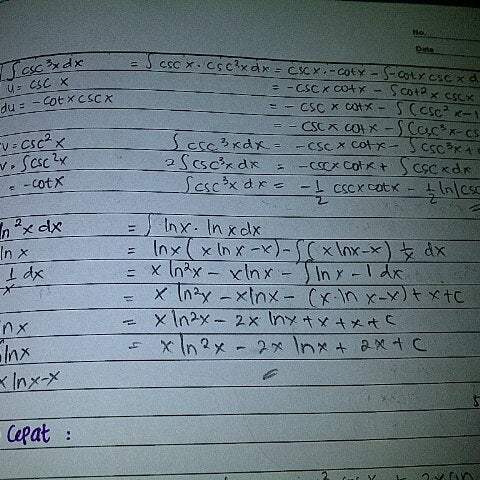 No.
Date
∫csc³x dx = ∫csc x · csc²x dx = csc x · -cot x - ∫-cot x csc x d
u = csc x = -csc x cot x - ∫cot²x csc x
du = -cot x csc x = -csc x cot x - ∫(csc²x - 1
= -csc x cot x - ∫(csc³x - cs
v = csc²x ∫csc³x dx = -csc x cot x - ∫csc³x +
v = ∫csc²x = ∫csc³x dx = -csc x cot x + ∫csc x dx
= -cot x ∫csc³x dx = -1/2 csc x cot x - 1/2 ln|csc
ln²x dx = ∫ln x · ln x dx
ln x = ln x (x ln x - x) - ∫(x ln x - x) 1/x dx
1/x dx = x ln²x - x ln x - ∫ln x - 1 dx
= x ln²x - x ln x - (x · ln x - x) + x + c
ln x = x ln²x - 2x ln x + x + x + c
∫ln x = x ln²x - 2x ln x + 2x + c
x ln x - x
Cepat :